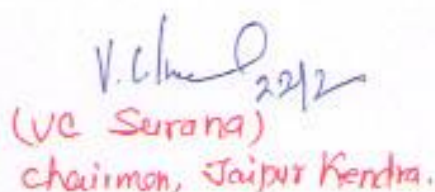 22/2
(VC Surana)
Chairman, Jaipur Kendra.